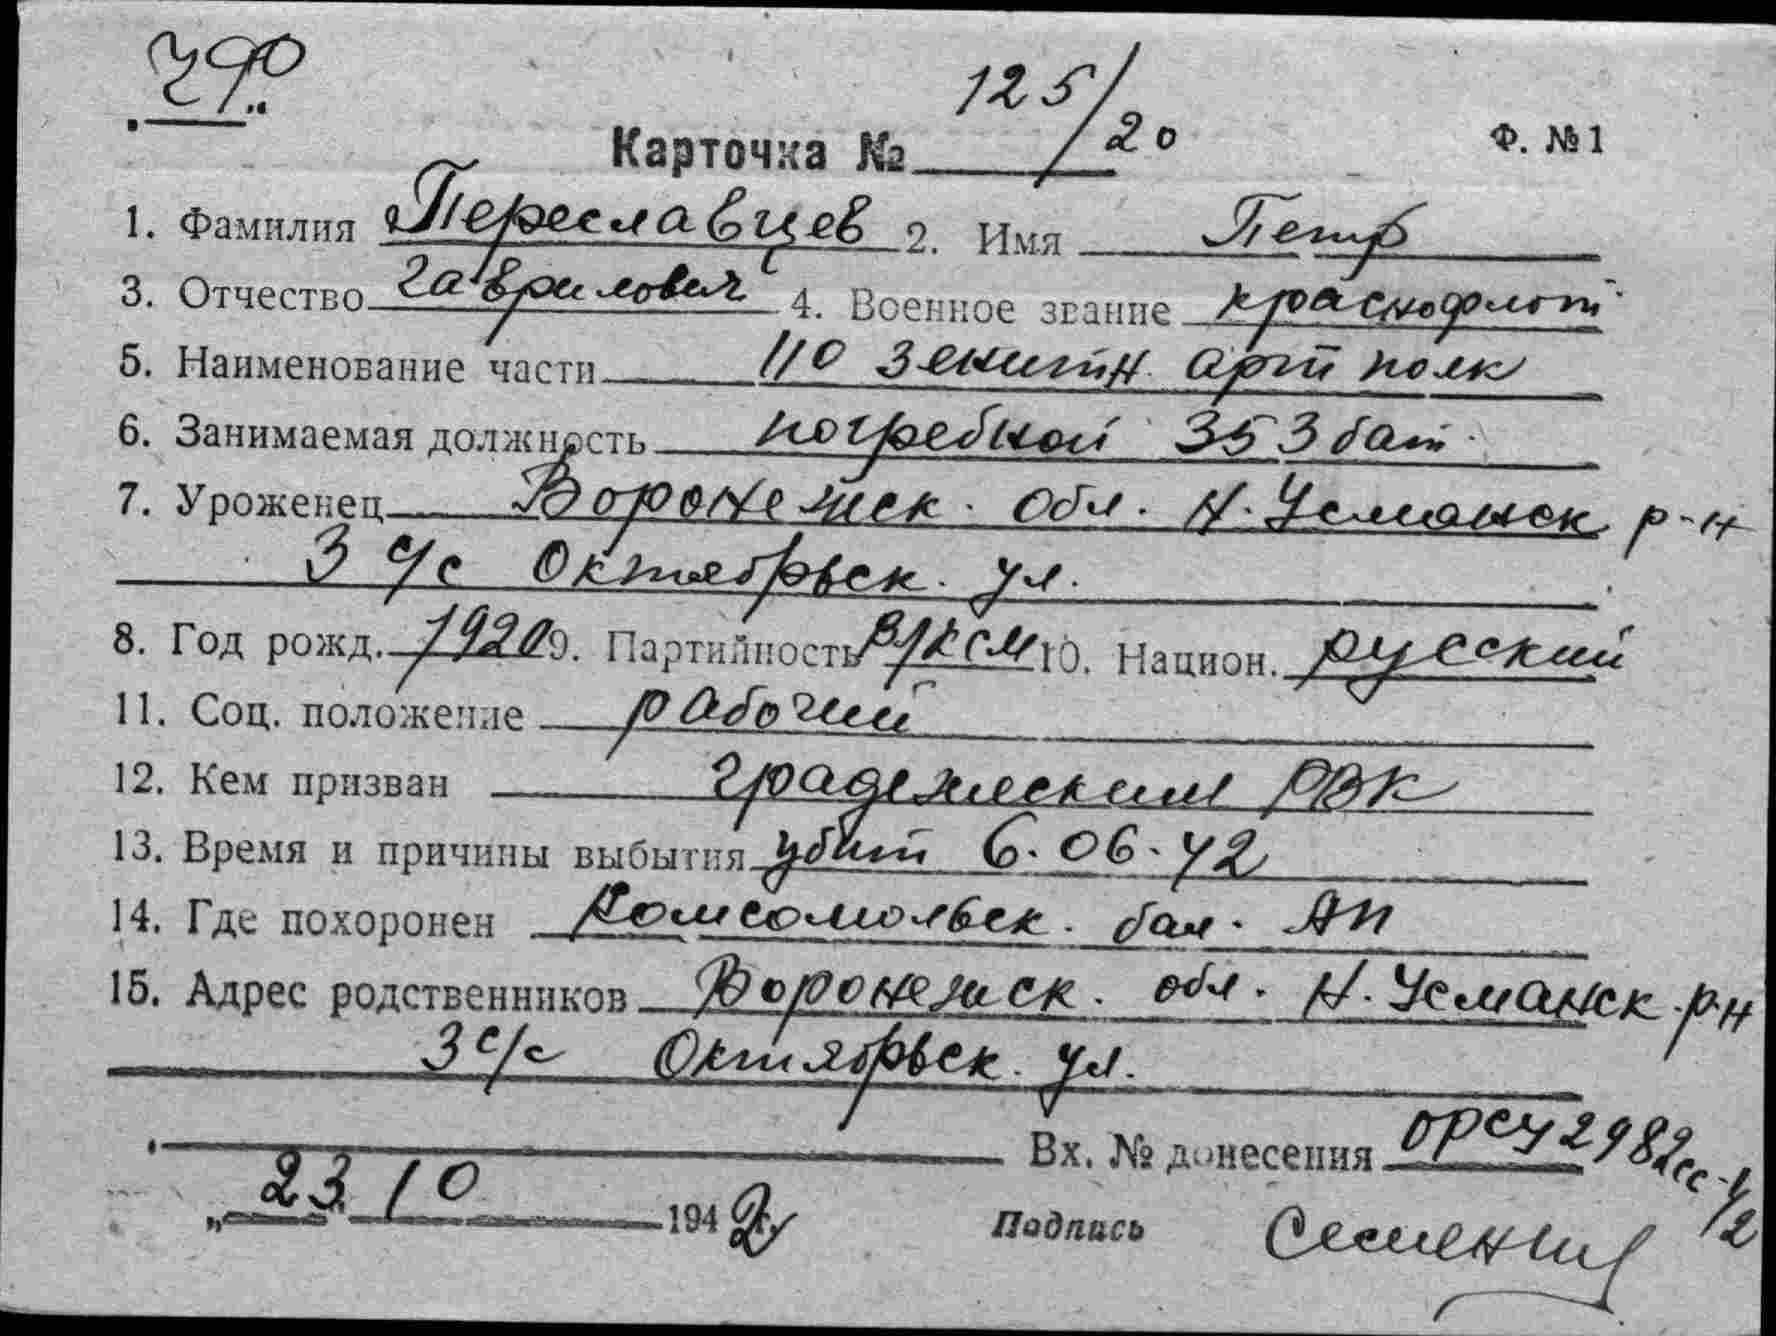 ЧФ
Карточка № 125/20 Ф. № 1
1. Фамилия Переславцев 2. Имя Петр
3. Отчество Гаврилович 4. Военное звание краснофлот
5. Наименование части 110 зенитн. арт полк
6. Занимаемая должность погребной 353 бат.
7. Уроженец Воронежск. обл. Н. Усманск р-н
3 с/с Октябрьск. ул.
8. Год рожд. 1920 9. Партийность ВЛКСМ 10. Национ. русский
11. Соц. положение рабочий
12. Кем призван градежским РВК
13. Время и причины выбытия убит 6.06.42
14. Где похоронен Комсомольск. бал. АП
15. Адрес родственников Воронежск. обл. Н. Усманск. р-н
3 с/с Октябрьск. ул.
Вх. № донесения 2982сс
„ 23. 10 1942
Подпись